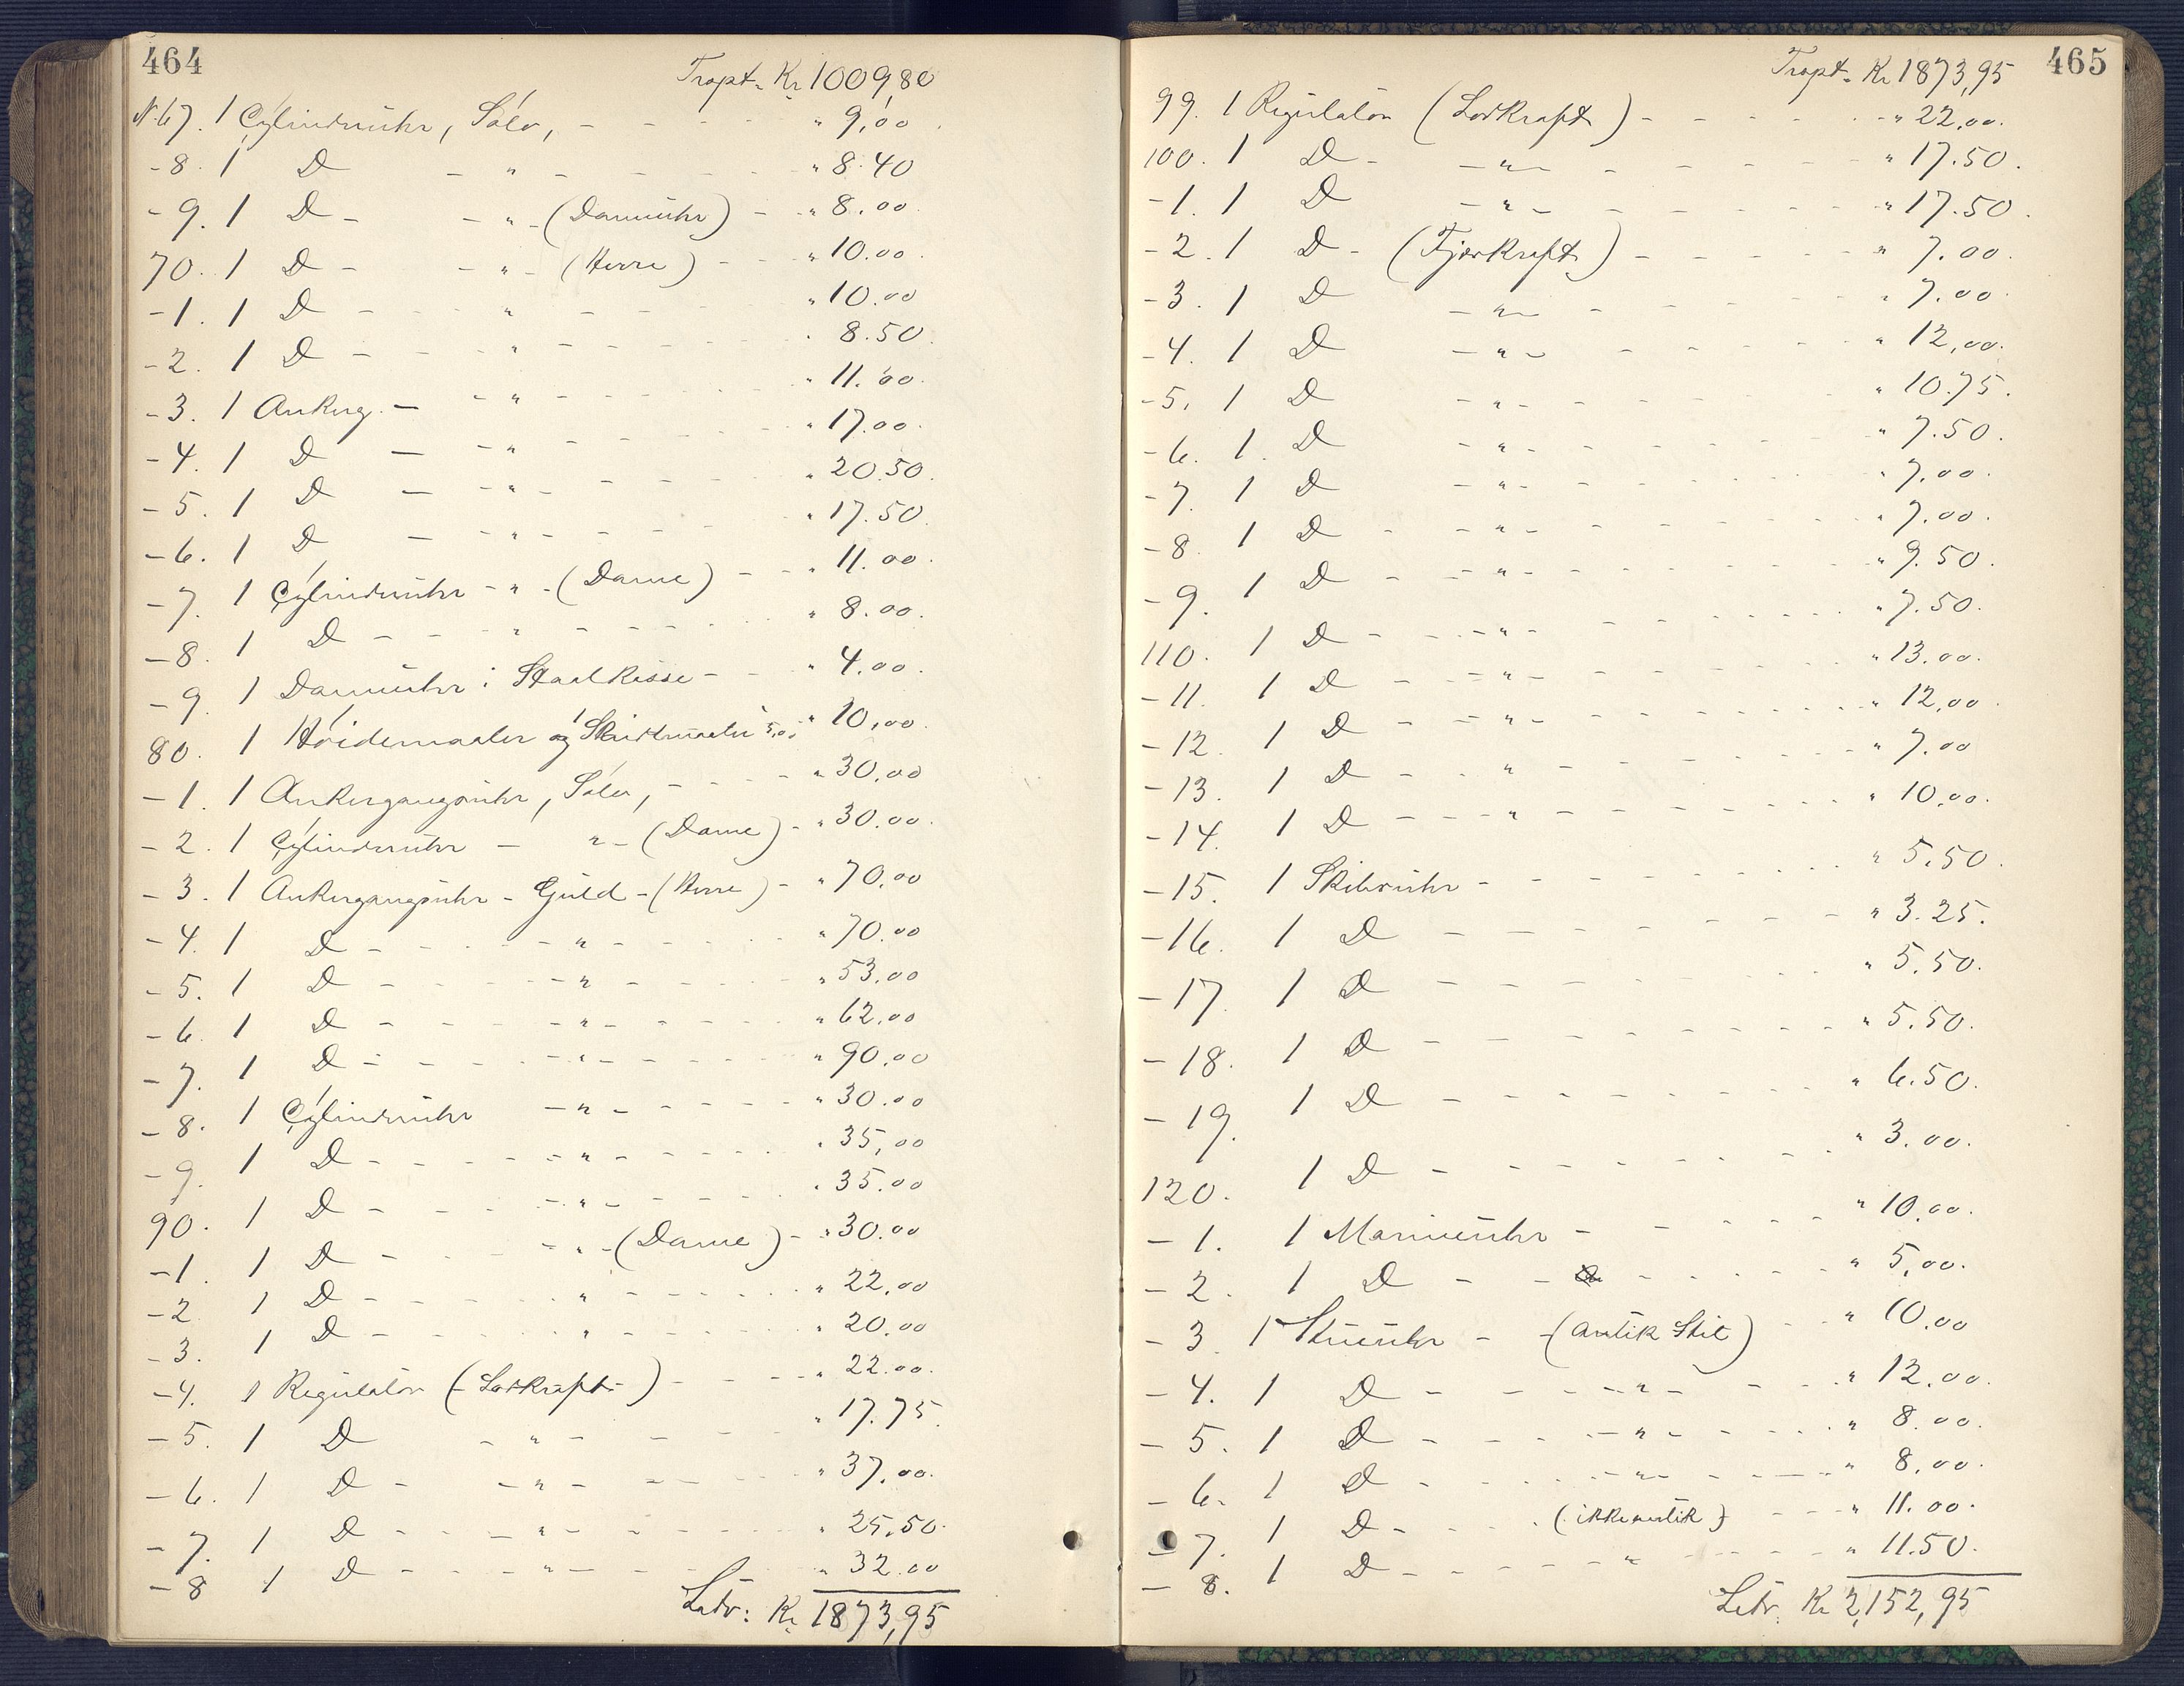 464
Trspt. Kr 1009,80
N. 67. 1 Cylinderuhr, Sølv, - - - " 9,00
- 8. 1 D - " - - - " 8.40
- 9. 1 D - - " - (Dameuhr) - - " 8.00
70. 1 D - - " - (Herre) - - " 10.00
- 1. 1 D - - " - - " 10.00
- 2. 1 D - - - " - - - " 8.50
- 3. 1 Ankerg. - - " - - - " 11.00
- 4. 1 D - - " - - - " 17.00
- 5. 1 D - - " - - - " 20.50
- 6. 1 D - - " - - - " 17.50
- 7. 1 Cylinderuhr - " - (Dame) - - " 11.00
- 8. 1 D - - " - - - " 8.00
- 9. 1 Dameuhr i Staalkasse - - " 4.00
80. 1 Høidemaaler og 1 Skridtmaaler 5,00 " 10,00
- 1. 1 Ankergangsuhr, Sølv, - - - " 30.00
- 2. 1 Cylinderuhr - " - (Dame) - " 30.00
- 3. 1 Ankergangsuhr - Guld - (Herre) - " 70,00
- 4. 1 D - - - " - - - " 70.00
- 5. 1 D - - - " - - - " 53.00
- 6. 1 D - - - " - - - " 62.00
- 7. 1 D - - - " - - - " 90.00
- 8. 1 Cylinderuhr - " - - - " 30.00
- 9. 1 D - - - " - - - " 35,00
90. 1 D - - - " - - - " 35.00
- 1. 1 D - - " - (Dame) - " 30.00
- 2 1 D - - - " - - - " 22.00
- 3. 1 D - - - " - - - " 20.00
- 4. 1 Regulator (- Lodkraft -) - - - " 22.00.
- 5. 1 D - " - - - " 17.75.
- 6. 1 D - - " - - - " 37.00.
- 7. 1 D - - - " - - - " 25.50.
- 8 1 D - - - " - - - " 32.00
Latr: Kr. 1873,95
465
Trspt. Kr 1873,95
99. 1 Regulator (Lodkraft) - - - " 22.00.
100. 1 D - - " - - - " 17.50.
- 1. 1 D - " - - - " 17.50.
- 2. 1 D - (Fjærkraft) - - - " 7.00.
- 3. 1 D - " - - - " 7.00.
- 4. 1 D - " - - - " 12,00.
- 5. 1 D - " - - - " 10.75.
- 6. 1. D - " - - - " 7.50.
- 7. 1 D - " - - - " 7,00.
- 8. 1 D - - " - - - " 7.00.
- 9. 1 D - - " - - - " 9.50.
110. 1 D - - " - - - " 7.50.
- 11. 1 D - - " - - - " 13.00.
- 12. 1 D - - " - - - " 12,00.
- 13. 1 D - - " - - - " 7.00
- 14. 1 D - - " - - - " 10.00.
- 15. 1 Skibsuhr - - - " 5.50.
- 16. 1 D - - - " 3.25.
- 17 1 D - - - " 5.50.
- 18. 1 D - - - " 5.50.
- 19. 1 D - - - " 6.50.
120. 1 D - - - " 3.00.
- 1. 1 Marineuhr - - - " 10.00.
- 2. 1 D - - - " 5,00.
- 3. 1 Stueuhr - - (Antik Stil) - " 10.00
- 4. 1 D - - - " - - " 12.00.
- 5. 1 D - - - " - - " 8.00.
- 6. 1 D - - - " - - " 8.00.
- 7. 1 D - - - (ikke antik) - - " 11.00.
- 8. 1 D - - - " - - " 11.50.
Latr. Kr 2,152,95